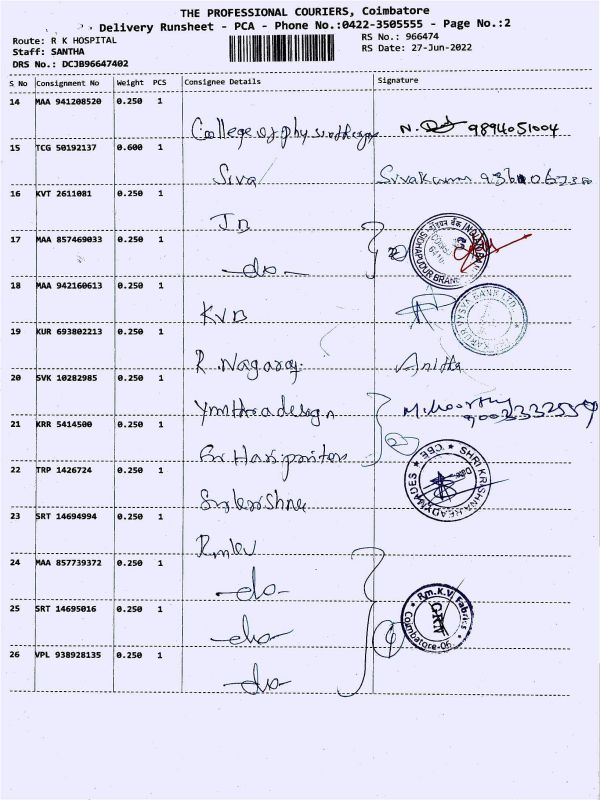 THE PROFESSIONAL COURIERS, Coimbatore
Delivery Runsheet - PCA - Phone No.:0422-3505555 - Page No.:2
Route: R K HOSPITAL
RS No.: 966474
Staff: SANTHA
RS Date: 27-Jun-2022
DRS No.: DCJB96647402
S No Consignment No Weight PCS Consignee Details Signature
14 MAA 941208520 0.250 1
College of physiotherapy 9894051004
15 TCG 50192137 0.600 1
Siva Sivakumar
16 KVT 2611081 0.250 1
IB
17 MAA 857469033 0.250 1
-do- 2
18 MAA 942160613 0.250 1
KVB
KARUR VYSYA BANK LTD.
19 KUR 693802213 0.250 1
R. Nagaraj Anitha
20 SVK 10282985 0.250 1
design M. Moorthy
21 KRR 5414500 0.250 1
Sri Hari printers 2
22 TRP 1426724 0.250 1
Sri krishna
SHRI KRISHNA CBE
23 SRT 14694994 0.250 1
Rmkv
24 MAA 857739372 0.250 1
-do-
25 SRT 14695016 0.250 1
-do- 4
Rm.K.V Fabrics
GRN
Coimbatore-06
26 VPL 938928135 0.250 1
-do-